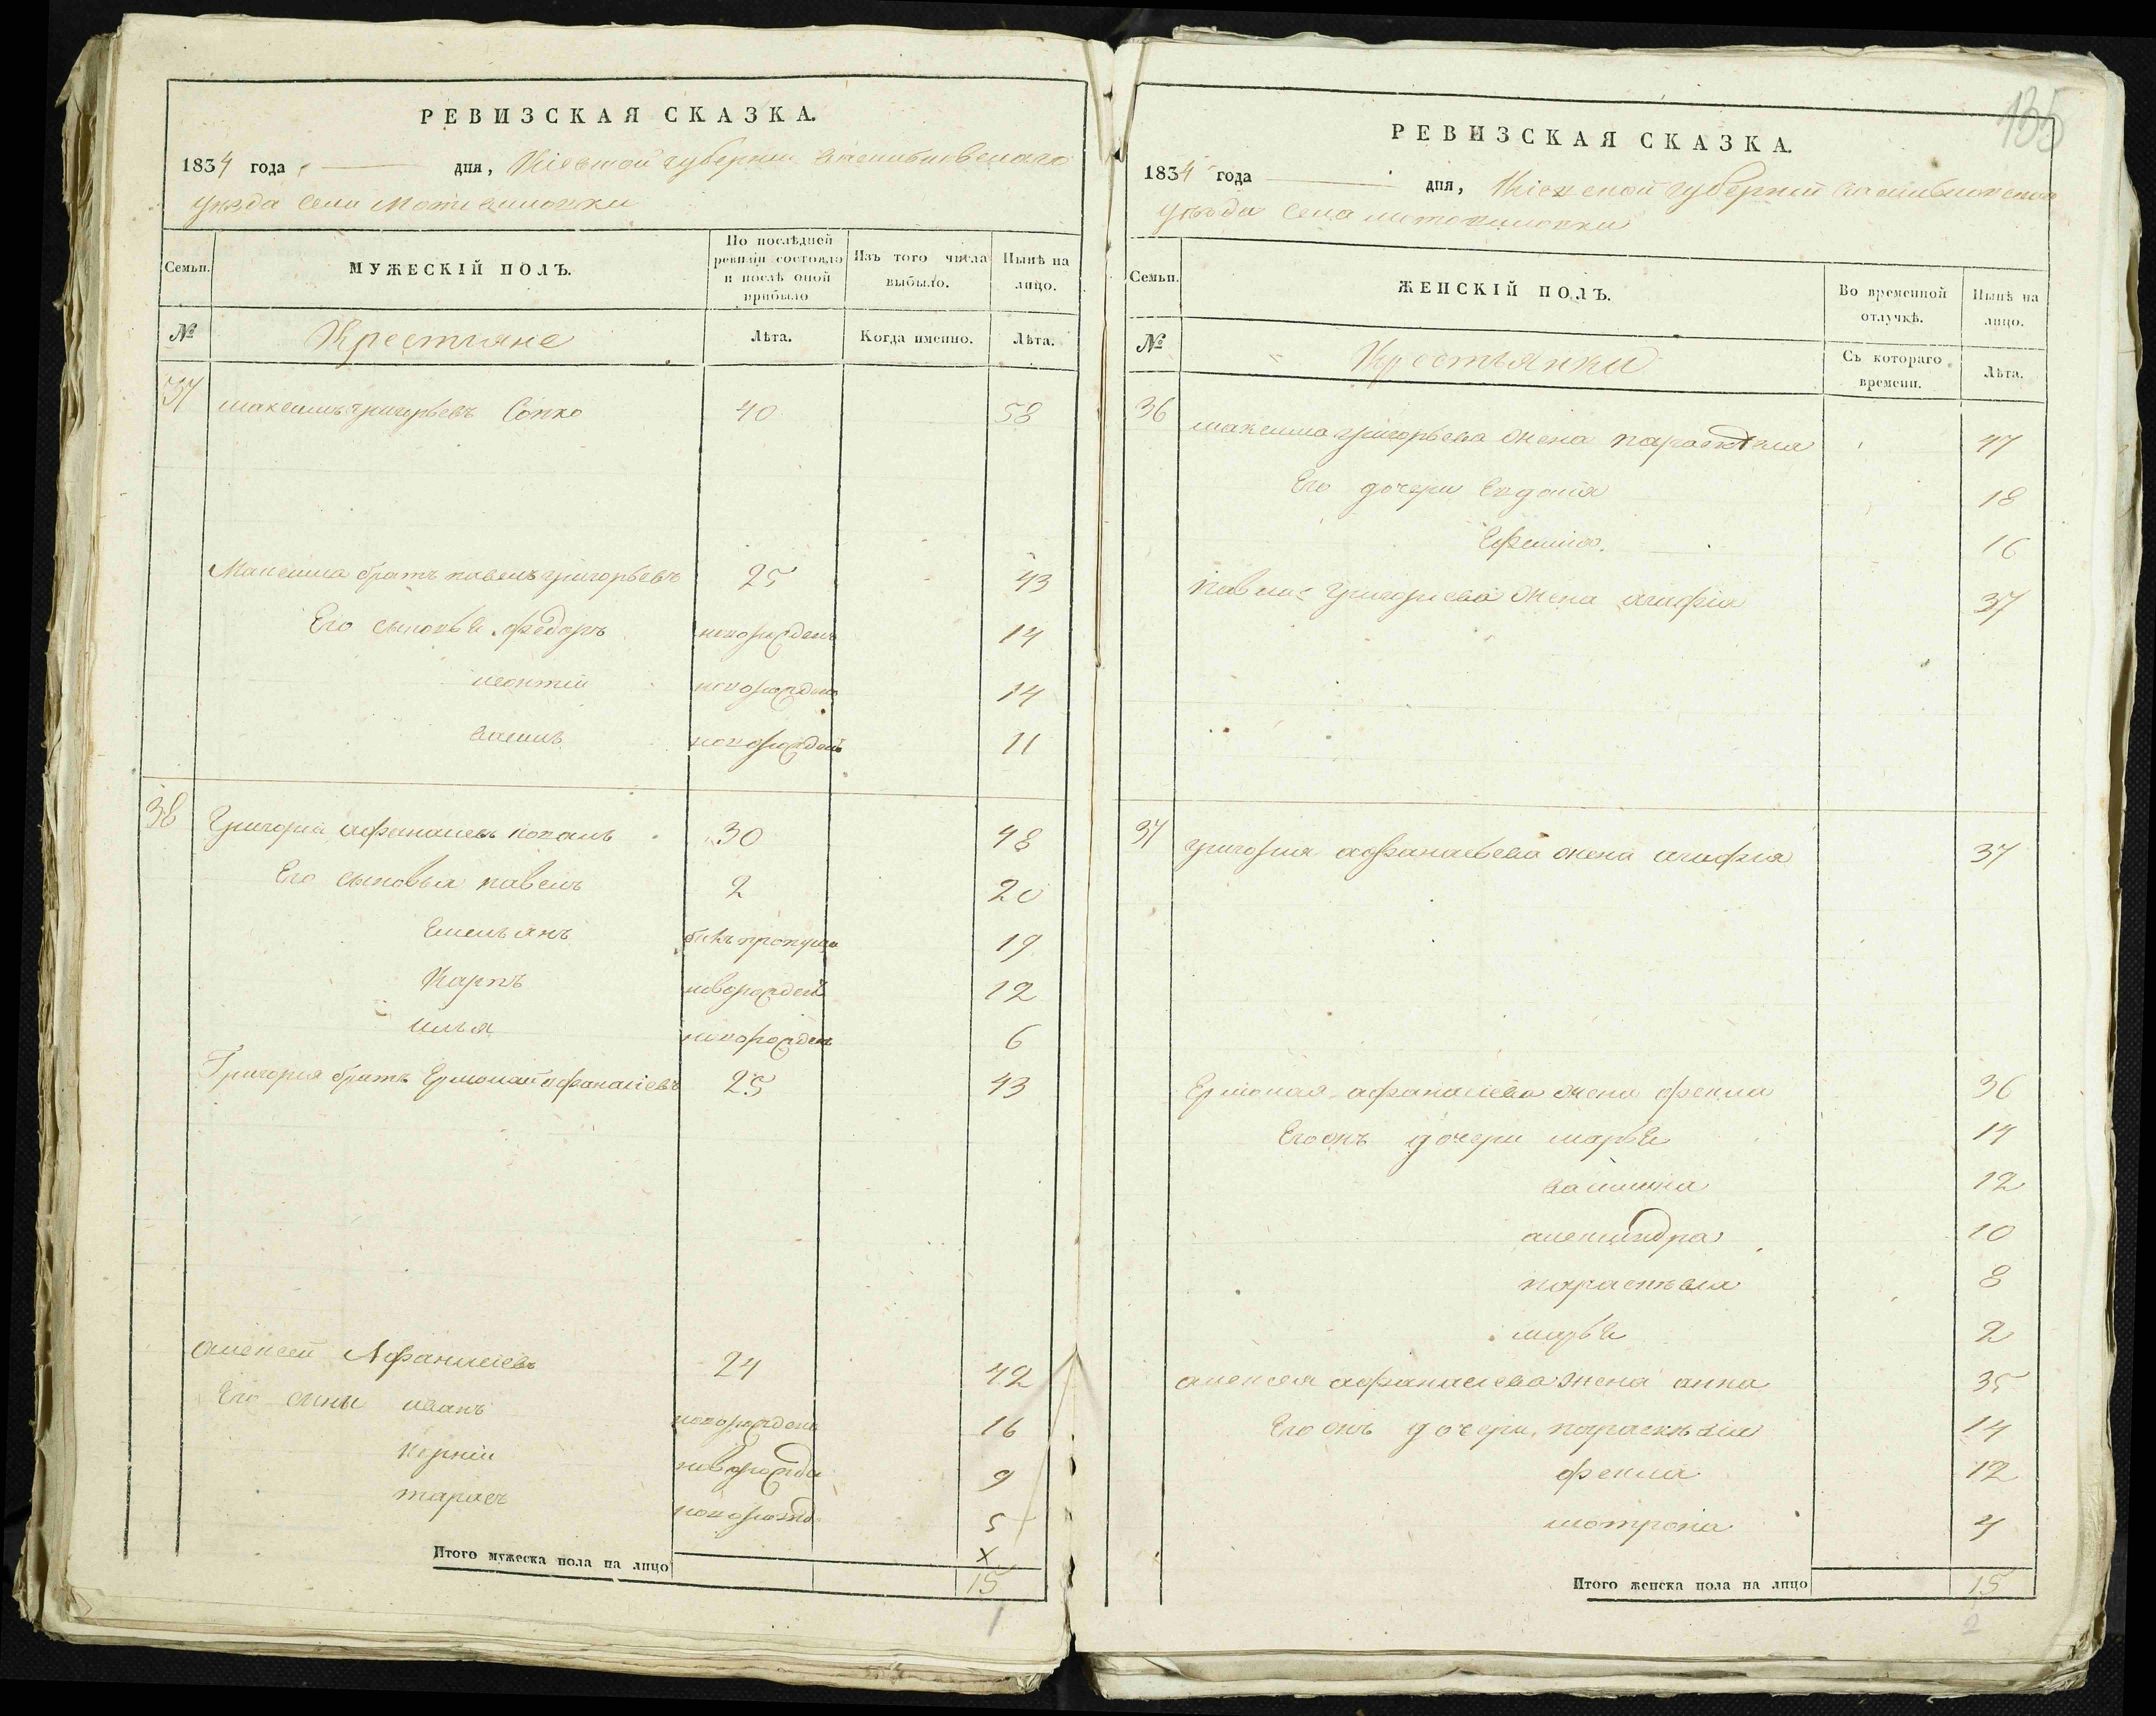 РЕВИЗСКАЯ СКАЗКА.
1834 года дня, Кіевской губерніи Васильковскаго
уезда Села Мотовиловки
Семьи. МУЖЕСКІЙ ПОЛЪ. По послѣдней ревизіи состояло и послѣ оной прибыло Изъ того числа выбыло. Нынѣ на лицо.
№ Крестьяне Лѣта. Когда именно. Лѣта.
37 максимъ григорьевъ Сопко 40 58
Максима братъ павелъ григорьевъ 25 43
Его сыновье федоръ новорожденъ 14
леонтій новорожденъ 14
василь новорожденъ 11
38 Григорій афанасіевъ 30 48
Его сыновья павелъ 2 20
Емельянъ 19
Карпъ новорожденъ 12
илья новорожденъ 6
Григорія братъ Ермолай афанасіевъ 25 43
алексей Афанасіевъ 24 42
Его сыны иванъ новорожденъ 16
Корній новорожде 9
тарасъ новорожд 5
Итого мужеска пола на лицо 15
1
135
РЕВИЗСКАЯ СКАЗКА.
1834 года дня, Кіевской губерніи Васильковскаго
уезда Села мотовиловки
Семьи. ЖЕНСКІЙ ПОЛЪ. Во временной отлучкѣ. Нынѣ на лицо.
№ Крестьянки Съ котораго времени. Лѣта.
36 максима григорьева жена 47
Его дочери Евдокія 18
Ефимія 16
павла григориева жена агафія 37
37 григорія афанасьева жена агафія 37
Ермолая афанасіева жена фекла 36
Его онъ дочери марье 14
12
александра 10
параскевія 8
марье 2
алексея афанасіева жена анна 35
Его онъ дочери, параскевія 14
фекла 12
мотрона 4
Итого женска пола на лицо 15
2